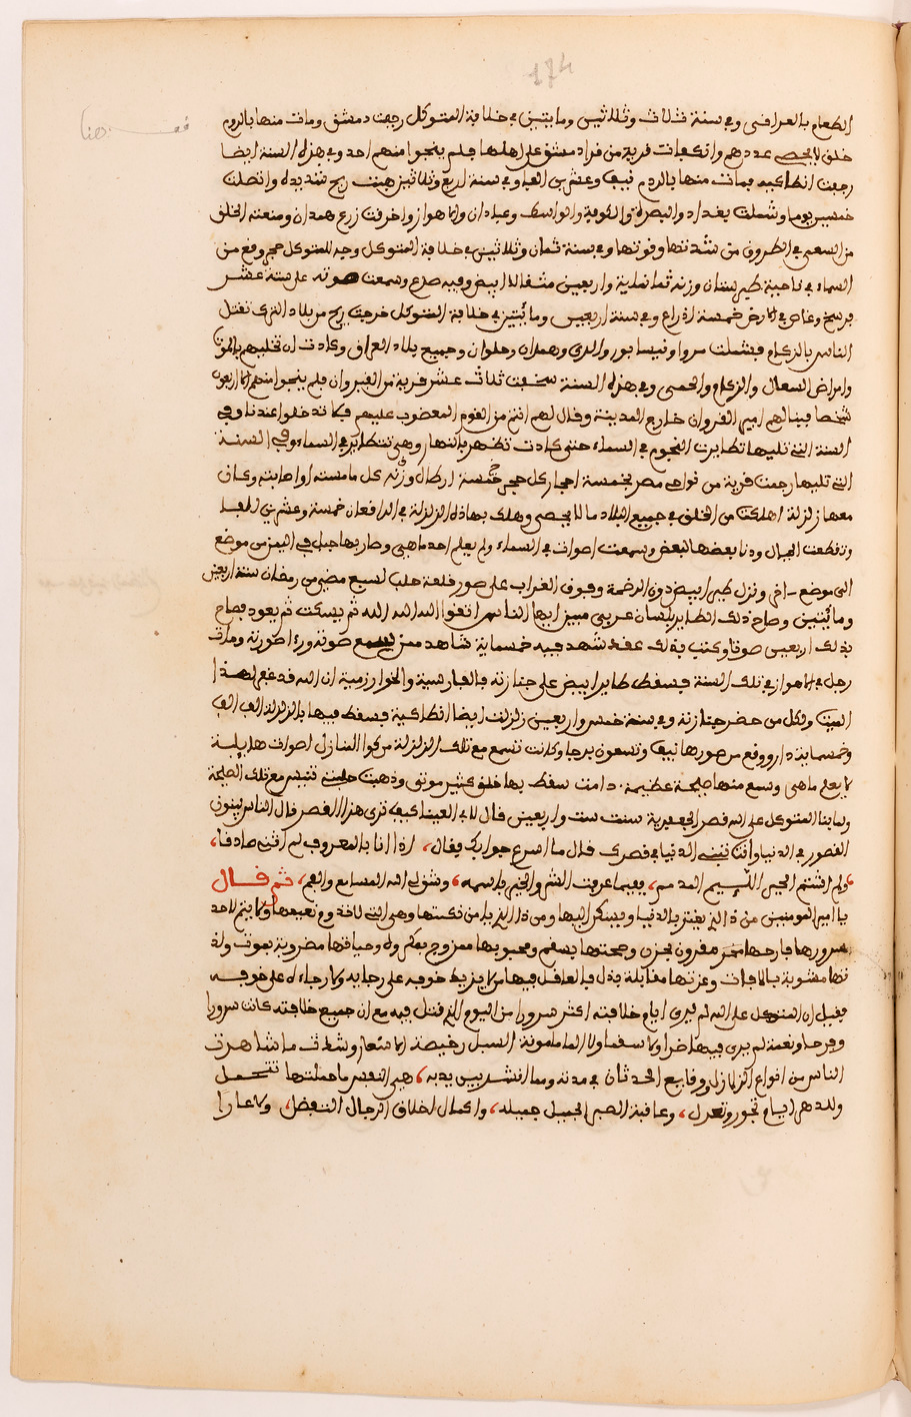 174
فف هنا
الطعام بالعراقى وفي سنة ثلاث وثلاثين ومايتين في خلافة المتوكل رجفت دمشق ومات منها بالردم
خلق لا يحصى عددهم وانكفات قرية من قراد مشق على اهلها فلم ينجوا منهم احد وفي هذه السنة ايضا
رجفت انطاكية فمات منها بالردم نيف وعشرين الفا وفي سنة اربع وثلاثين هبت ريح شديدة واتصلت
خمسين يوما وشملت بغداد والبصرة والكوفة والواسط وعبادان والاهواز واحرقت زرع همدان ومنعت الخلق
من السعي في الطروق من شدتها وقوتها وفي سنة ثمان وثلاثين في خلافة المتوكل وجه للمتوكل حجر وقع من
السماء في ناحية طبرستان وزنه ثمانماية واربعين مثقالا ابيض وفيه صدع وسمعت صوته على ستة عشر
فرسخ وغاص في الارض خمسة اذراع وفي سنة اربعين ومائتين في خلافة المتوكل خرجت ريح من بلاد الترك تقتل
الناس بالزكام فشملت مروا ونيسابور والري وهمدان وحلوان وجميع بلاد العراق وكادت ان تخليهم بالموت
وامراض السعال والزكام والحمى وفي هذه السنة سخفت ثلاث عشر قرية من القيروان فلم ينجوا منهم الا اربعون
شخصا فبنا لهم امير القروان خارج المدينة وقال لهم انتم من القوم المغضوب عليهم فلا تدخلوا عندنا وفي
السنة التي تليها تطايرت النجوم في السماء حتى كادت تظهر بالنهار وهي تتطاير في السماء وفي السنة
التي تليها رجفت قرية من نواحي مصر بخمسة احجار كل حجر خمسة ارطال وزنه كل ما مسته او اصابته وكان
معها زلزلة اهلكت من الخلق في جميع البلاد ما لا يحصى وهلك بهاذه الزلزلة في الدافعان خمسة وعشرين الفا
وتقطعت الجبال ودنا بعضها لبعض وسمعت اصوات في السماء ولم يعلم احد ما هي وصار بها جبل في اليمن من موضع
الى موضع اخر ونزل طير ابيض دون الرخمة وفوق الغراب على صور قلعة حلب لسبع مضين من رمضان سنة اربعين
ومائتين وصاح ذلك الطاير بلسان عربي مبين ايها الناس اتقوا الله الله الله ثم يسكت ثم يعود فصاح
بذلك اربعين صوتا وكتب بذلك عقد شهد فيه خمسماية شاهد ممن سمع صوته وراء صورته ومات
رجل في الاهواز في تلك السنة فسقط طاير ابيض على جنازته فبالفارسية والخوارزمية ان الله قد غفر لهذا
الميت ولكل من حضر جنازته وفي سنة خمس واربعين زلزلت ايضا انطاكية فسقط فيها بالزلزلة الف الف
وخمسماية دار ووقع من صورها نيف وتسعون برجا وكانت تسمع مع تلك الزلزلة من كوا المنازل اصوات هايلة
لا يعلم ما هي وسمع منها صيحة عظيمة دامت سقط بها خلق كثير موتى وذهبت تنيس مع تلك الصيحة
ولما بنا المتوكل على الله قصر الجعفرية سنت ست واربعين قال لابي العينا كيف ترى هذا القصر قال الناس يبنون
القصور في الدنيا وانت تبني الدنيا في قصرك فقال ما اسرع جوابك فقال، اذا انا بالمعروف لم اثن صادقا،
ولم اشتم الجبس اللئيم المذمم، ففيما عرفت الشر والخير باسمه، وشق لي الله المسامع والفم، ثم قال
يا امير المومنين من ذا الذي يغتر بالدنيا ويسكن اليها ومن ذا الذي يامن نكبتها وهي التي لا تدوم نعيمها ولا يتم لاحد
سرورها فارحها مقرون بحزن وصحتها بسقم ومحبوبها ممزوج بمكروه وحياتها مضروبة بموت ولذ
تها مشوبة بالافات وعزتها مقابلة بذل فالعاقل فيها من لا يزيد خوفه على رجايه ولا رجاءه على خوفه
فقيل ان المتوكل على الله لم يرى ايام خلافته اكثر سرورا من اليوم الذي قتل فيه مع ان جميع خلافته كانت سرورا
وفرحا ونعمة لم يرى فيها ضرا ولا سقما ولا الما مامونة السبل رخيصة الاسعار وشط ما شاهدت
الناس من انواع الزلازل ووقايع الحدثان في مدته ومما انشد بين يديه، هي النفس ما حملتها تتحمل
وللدهر ايام تجور وتعدل، وعاقبة الصبر الجميل جميلة، واكمال اخلاق الرجال التفضل، ولا عارا